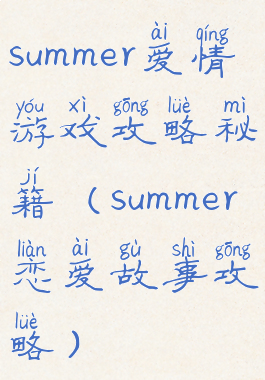 ài qíng
summer爱情
yóu xì gōng lüè mì
游戏攻略秘
jí
籍（summer
liàn ài gù shì gōng
恋爱故事攻
lüè
略）